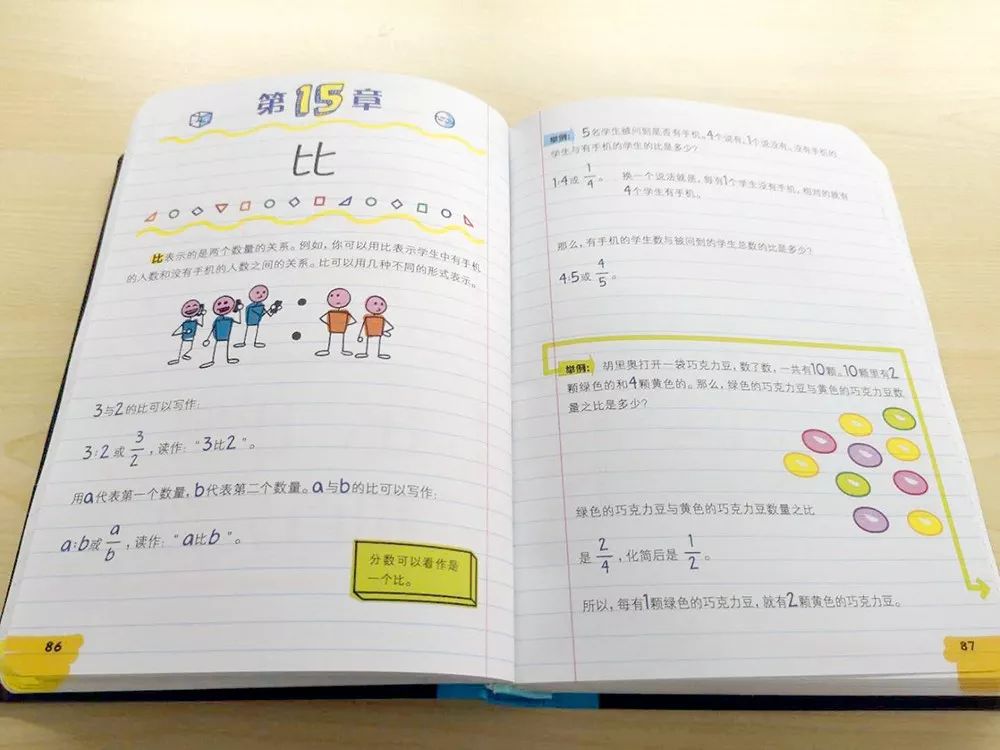 第15章
比
比表示的是两个数量的关系。例如,你可以用比表示学生中有手机
的人数和没有手机的人数之间的关系。比可以用几种不同的形式表示。
3与2的比可以写作:
3:2 或 3/2,读作:“3比2”。
用a代表第一个数量,b代表第二个数量。a与b的比可以写作:
a:b或 a/b,读作:“a比b”。
分数可以看作是
一个比。
86
举例: 5名学生被问到是否有手机。4个说有,1个说没有。没有手机的
学生与有手机的学生的比是多少?
1:4或 1/4。 换一个说法就是,每有1个学生没有手机,相对的就有
4个学生有手机。
那么,有手机的学生数与被问到的学生总数的比是多少?
4:5或 4/5。
举例: 胡里奥打开一袋巧克力豆,数了数,一共有10颗。10颗里有2
颗绿色的和4颗黄色的。那么,绿色的巧克力豆与黄色的巧克力豆数
量之比是多少?
绿色的巧克力豆与黄色的巧克力豆数量之比
是 2/4,化简后是 1/2。
所以,每有1颗绿色的巧克力豆,就有2颗黄色的巧克力豆。
87